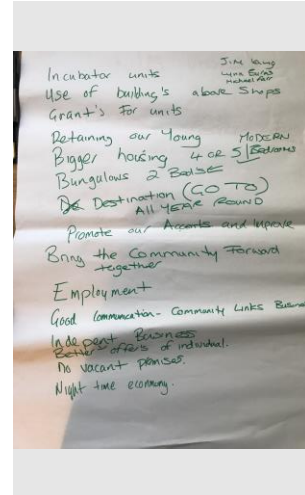 Jim Young
Lynn Burns
Michael Farr
Incubator units
Use of building's above Shops
Grant's For units
Retaining our Young
MODERN
Bigger housing 4 or 5 Bedrooms
Bungalows 2 Beds
Destination (GO TO)
ALL YEAR ROUND
Promote our Assents and Improve
Bring the Community Forward
together
Employment
Good Communication - Community Links Business
Indepent Business
Better offers of individual.
No vacant premises.
Night time economy.